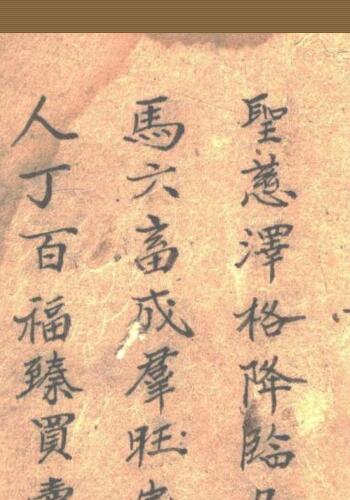 聖慈澤格降臨
馬六畜成羣旺
人丁百福臻買